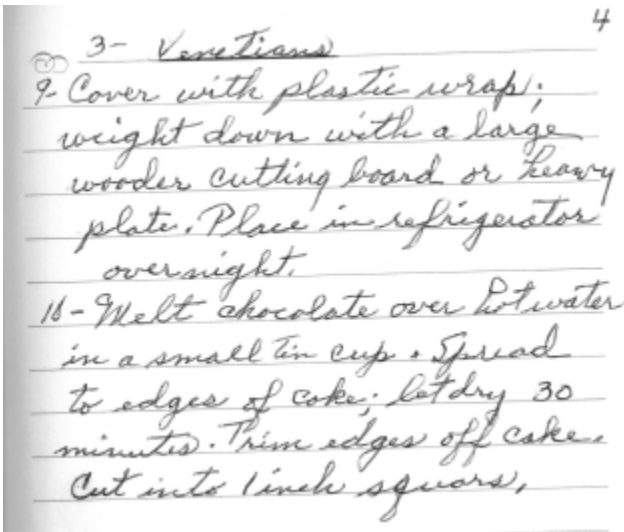 4
3- Venetians
9- Cover with plastic wrap;
weight down with a large
wooder cutting board or heavy
plate. Place in refrigerator
overnight.
10- Melt chocolate over hot water
in a small tin cup. Spread
to edges of cake; let dry 30
minutes. Trim edges off cake.
Cut into 1 inch squars,